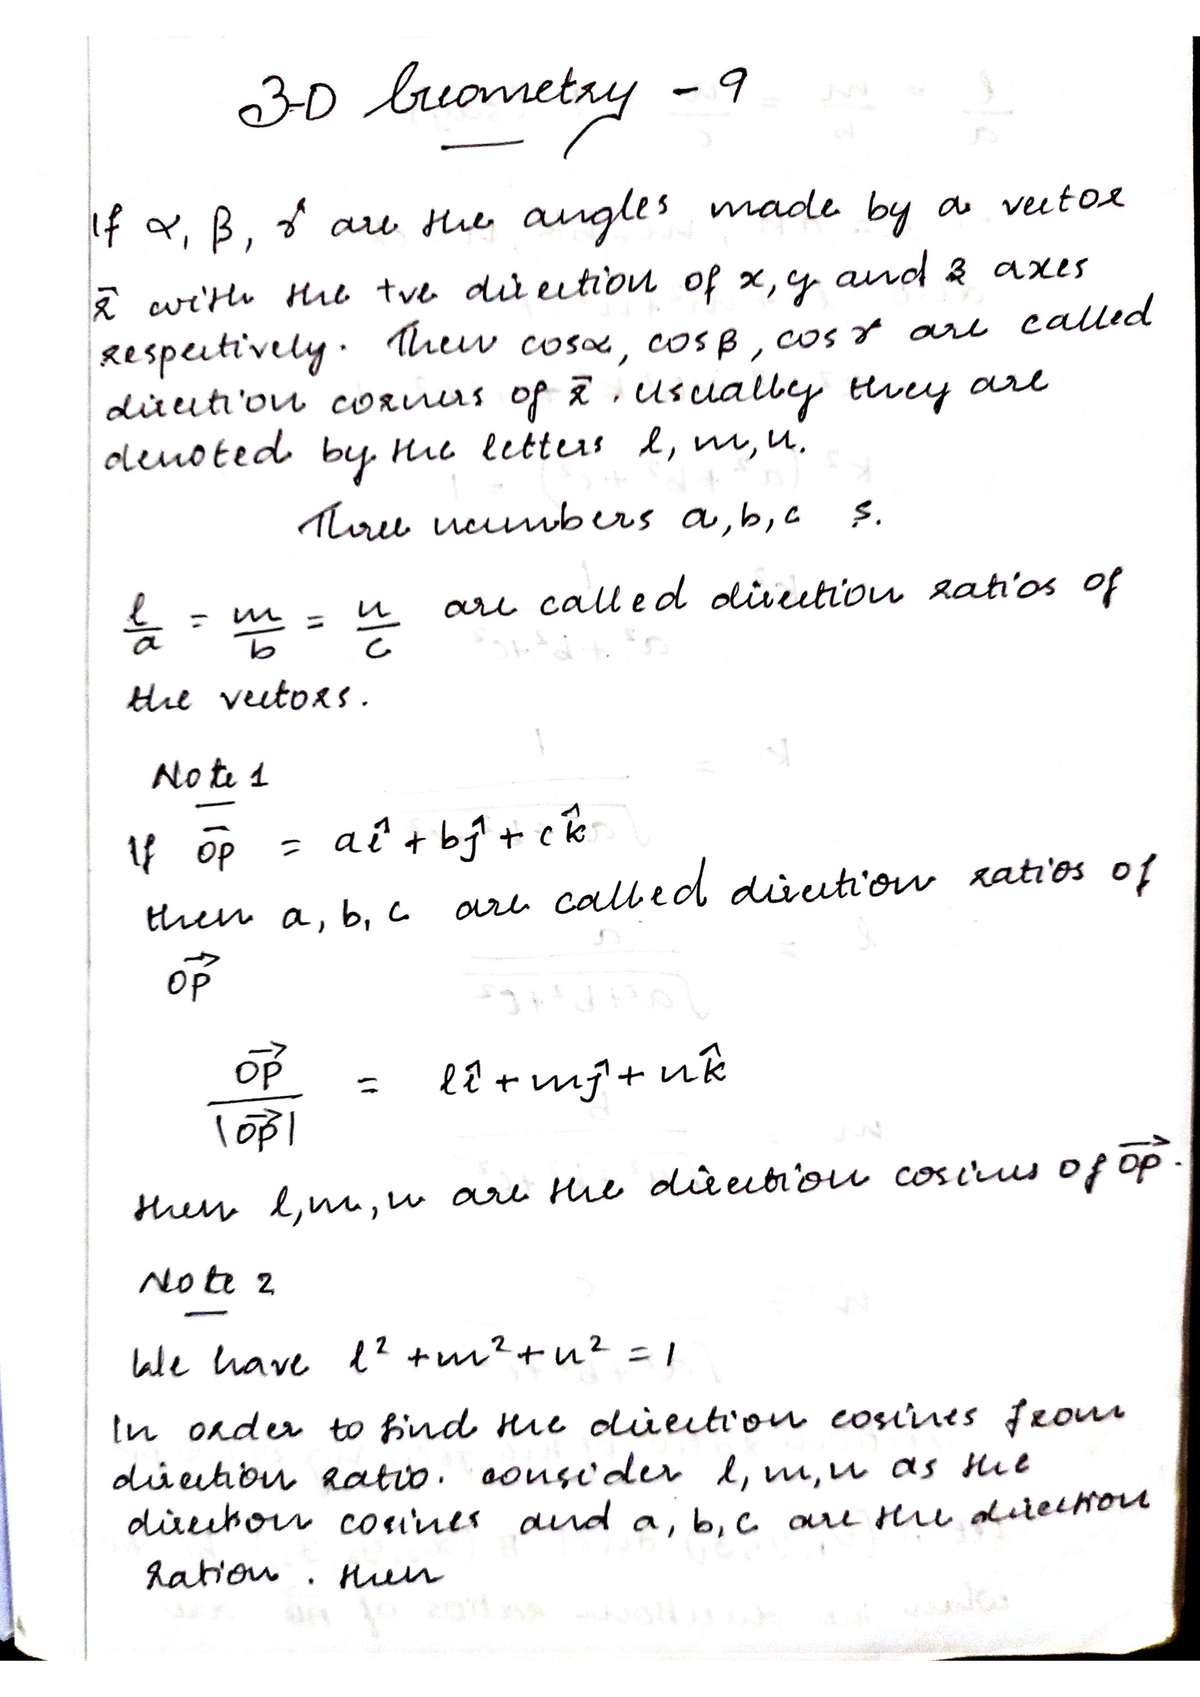 3-D Geometry - 9
If α, β, γ are the angles made by a vector
r̄ with the +ve direction of x, y and z axes
respectively. Then cosα, cosβ, cosγ are called
direction cosines of r̄. Usually they are
denoted by the letters l, m, n.
Three numbers a, b, c s.
l/a = m/b = n/c are called direction ratios of
the vectors.
Note 1
If O̅P̅ = aî + bĵ + ck̂
then a, b, c are called direction ratios of
OP⃗
OP⃗/|OP⃗| = lî + mĵ + nk̂
then l, m, n are the direction cosines of OP⃗.
Note 2
We have l² + m² + n² = 1
In order to find the direction cosines from
direction ratio. consider l, m, n as the
direction cosines and a, b, c are the direction
ration. then